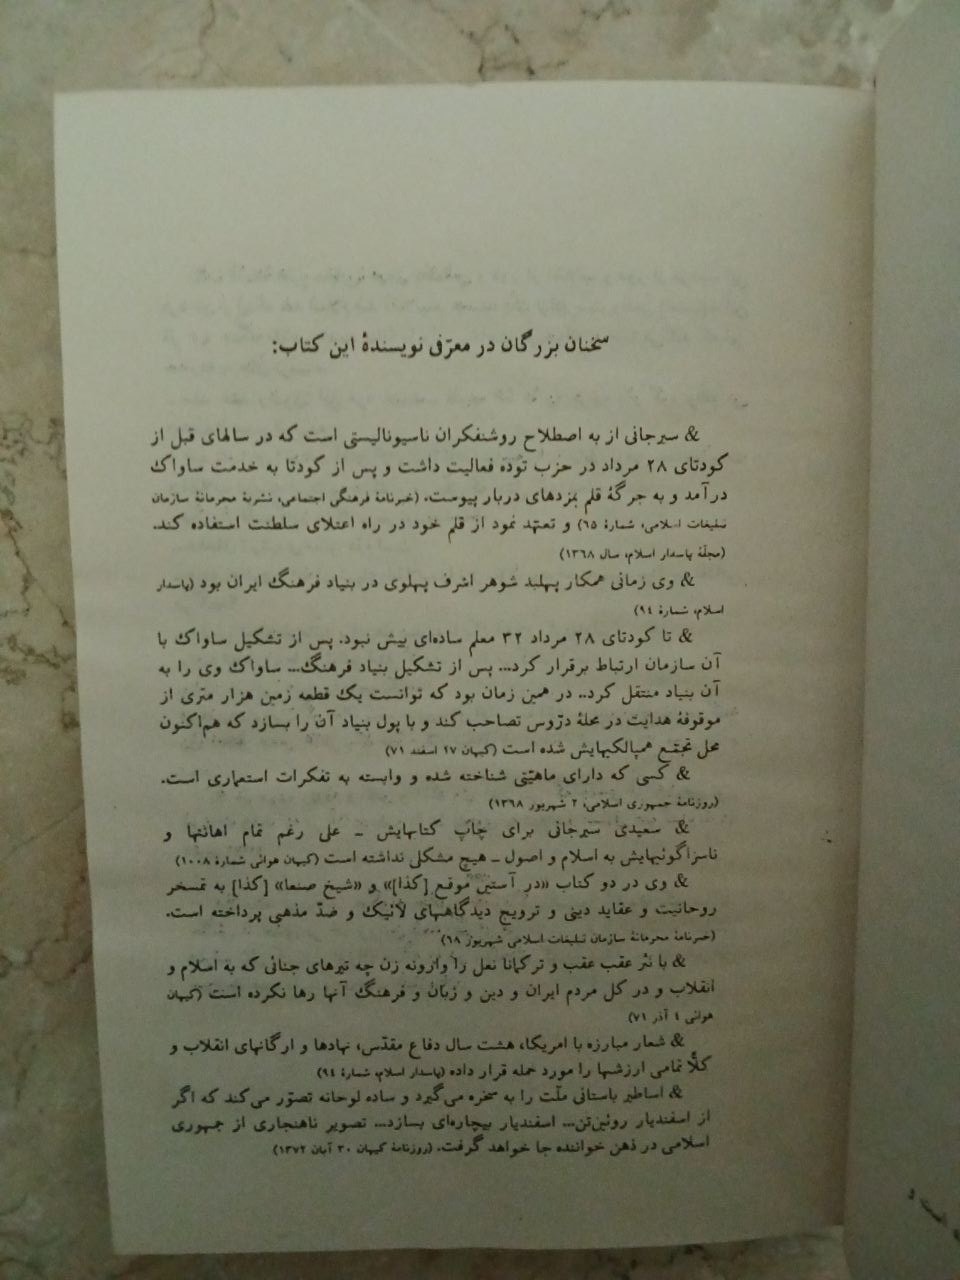 سخنان بزرگان در معرّفی نویسندهٔ این کتاب:
& سیرجانی از به اصطلاح روشنفکران ناسیونالیستی است که در سالهای قبل از
کودتای ۲۸ مرداد در حزب توده فعالیت داشت و پس از کودتا به خدمت ساواک
درآمد و به جرگهٔ قلم بمزدهای دربار پیوست. (خبرنامهٔ فرهنگی اجتماعی، نشریهٔ محرمانهٔ سازمان
تبلیغات اسلامی، شمارهٔ ۶۵) و تعهّد نمود از قلم خود در راه اعتلای سلطنت استفاده کند.
(مجلّهٔ پاسدار اسلام، سال ۱۳۶۸)
& وی زمانی همکار پهلبد شوهر اشرف پهلوی در بنیاد فرهنگ ایران بود (پاسدار
اسلام، شمارهٔ ۹۴)
& تا کودتای ۲۸ مرداد ۳۲ معلم ساده‌ای بیش نبود. پس از تشکیل ساواک با
آن سازمان ارتباط برقرار کرد... پس از تشکیل بنیاد فرهنگ... ساواک وی را به
آن بنیاد منتقل کرد.. در همین زمان بود که توانست یک قطعه زمین هزار متری از
موقوفهٔ هدایت در محلهٔ درّوس تصاحب کند و با پول بنیاد آن را بسازد که هم‌اکنون
محل تجمّع همپالکیهایش شده است (کیهان ۲۷ اسفند ۷۱)
& کسی که دارای ماهیّتی شناخته شده و وابسته به تفکرات استعماری است.
(روزنامهٔ جمهوری اسلامی، ۲ شهریور ۱۳۶۸)
& سعیدی سیرجانی برای چاپ کتابهایش ـ علی رغم تمام اهانتها و
ناسزاگوئیهایش به اسلام و اصول ـ هیچ مشکلی نداشته است (کیهان هوائی شمارهٔ ۱۰۰۸)
& وی در دو کتاب «در آستین موقع [کذا]» و «شیخ صنعا» [کذا] به تمسخر
روحانیت و عقاید دینی و ترویج دیدگاههای لائیک و ضدّ مذهبی پرداخته است.
(خبرنامهٔ محرمانهٔ سازمان تبلیغات اسلامی شهریور ۶۸)
& با نثر عقب عقب و ترکمانا نعل را وارونه زن چه تیرهای جنائی که به اسلام و
انقلاب و در کل مردم ایران و دین و زبان و فرهنگ آنها رها نکرده است (کیهان
هوائی ٤ آذر ۷۱)
& شعار مبارزه با امریکا، هشت سال دفاع مقدّس، نهادها و ارگانهای انقلاب و
کلاً تمامی ارزشها را مورد حمله قرار داده (پاسدار اسلام، شمارهٔ ۹۴)
& اساطیر باستانی ملّت را به سخره می‌گیرد و ساده لوحانه تصوّر می‌کند که اگر
از اسفندیار روئین‌تن... اسفندیار بیچاره‌ای بسازد... تصویر ناهنجاری از جمهوری
اسلامی در ذهن خواننده جا خواهد گرفت. (روزنامهٔ کیهان ۳۰ آبان ۱۳۷۲)